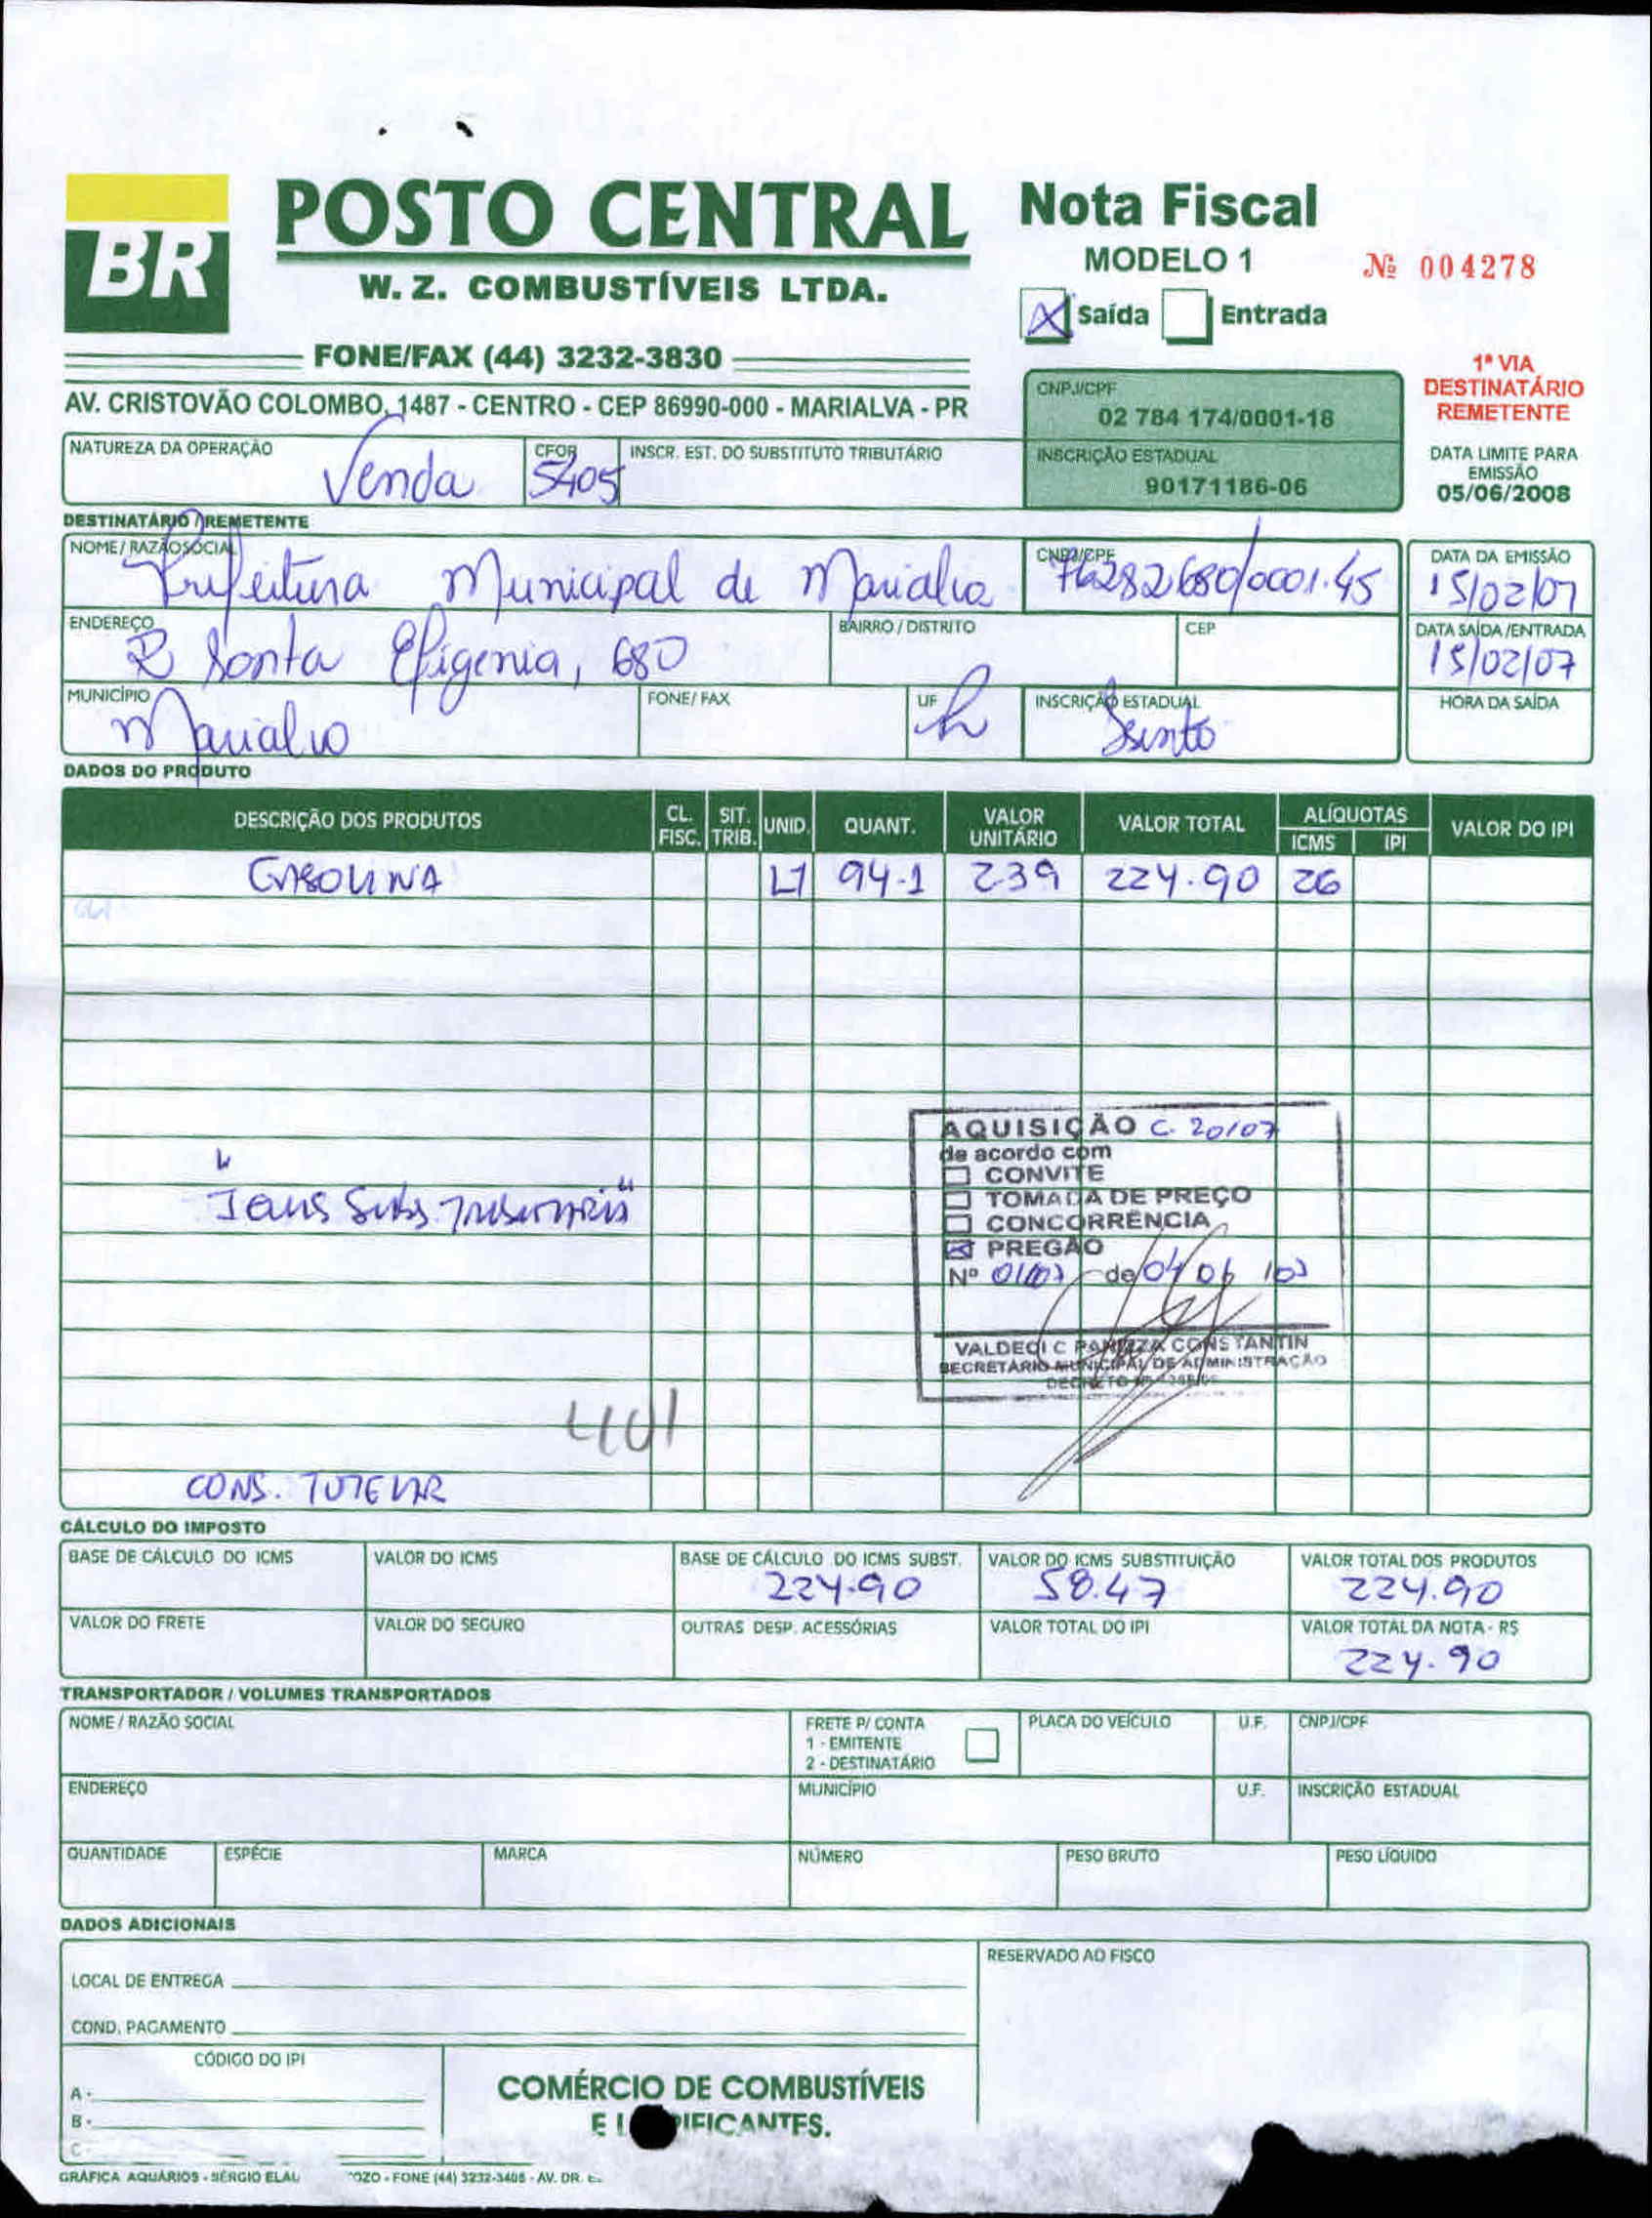 BR
POSTO CENTRAL
W. Z. COMBUSTÍVEIS LTDA.
FONE/FAX (44) 3232-3830
AV. CRISTOVÃO COLOMBO, 1487 - CENTRO - CEP 86990-000 - MARIALVA - PR
Nota Fiscal
MODELO 1
Nº 004278
X Saída Entrada
1ª VIA
DESTINATÁRIO
REMETENTE
CNPJ/CPF
02 784 174/0001-18
INSCRIÇÃO ESTADUAL
90171186-06
DATA LIMITE PARA
EMISSÃO
05/06/2008
NATUREZA DA OPERAÇÃO
Venda
CFOP
5405
INSCR. EST. DO SUBSTITUTO TRIBUTÁRIO
DESTINATÁRIO / REMETENTE
NOME / RAZÃO SOCIAL
Prefeitura Municipal de Marialva
CNPJ/CPF
76282680/0001.45
DATA DA EMISSÃO
15/02/07
ENDEREÇO
R Santa Efigenia, 680
BAIRRO / DISTRITO
CEP
DATA SAÍDA /ENTRADA
15/02/07
MUNICÍPIO
Marialva
FONE/ FAX
UF
INSCRIÇÃO ESTADUAL
Isento
HORA DA SAÍDA
DADOS DO PRODUTO
DESCRIÇÃO DOS PRODUTOS CL. FISC. SIT. TRIB. UNID. QUANT. VALOR UNITÁRIO VALOR TOTAL ALÍQUOTAS ICMS IPI VALOR DO IPI
GASOLINA LT 94.1 239 224.90 26
AQUISIÇÃO C. 20/07
de acordo com
CONVITE
TOMADA DE PREÇO
CONCORRÊNCIA
PREGÃO
Nº 01/07 de
VALDECI C PANIZZA CONSTANTIN
SECRETÁRIO MUNICIPAL DE ADMINISTRAÇÃO
DECRETO Nº
"Icms Subs. Tributária"
401
CONS. TUTELAR
CÁLCULO DO IMPOSTO
BASE DE CÁLCULO DO ICMS
VALOR DO ICMS
BASE DE CÁLCULO DO ICMS SUBST.
224.90
VALOR DO ICMS SUBSTITUIÇÃO
58.47
VALOR TOTAL DOS PRODUTOS
224.90
VALOR DO FRETE
VALOR DO SEGURO
OUTRAS DESP. ACESSÓRIAS
VALOR TOTAL DO IPI
VALOR TOTAL DA NOTA - R$
224.90
TRANSPORTADOR / VOLUMES TRANSPORTADOS
NOME / RAZÃO SOCIAL
FRETE P/ CONTA
1 - EMITENTE
2 - DESTINATÁRIO
PLACA DO VEÍCULO
U.F.
CNPJ/CPF
ENDEREÇO
MUNICÍPIO
U.F.
INSCRIÇÃO ESTADUAL
QUANTIDADE
ESPÉCIE
MARCA
NÚMERO
PESO BRUTO
PESO LÍQUIDO
DADOS ADICIONAIS
LOCAL DE ENTREGA
COND. PAGAMENTO
RESERVADO AO FISCO
CÓDIGO DO IPI
A -
B -
C -
COMÉRCIO DE COMBUSTÍVEIS
E
GRÁFICA AQUÁRIOS - SÉRGIO - FONE (44) 3232-3408 - AV. DR.